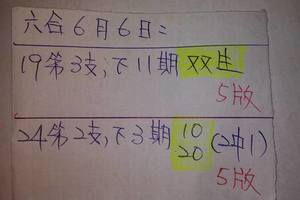 六合6月6日=
19第3支;下11期双生
5版
24第2支,下3期10
20(2中1)
5版